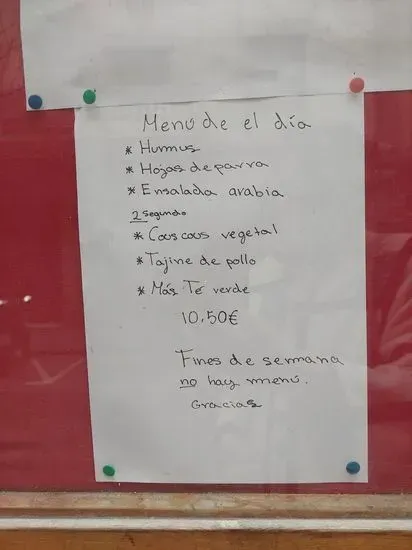 Menú de el día
* Hummus
* Hojas de parra
* Ensalada arabia
2 segundo
* Couscous vegetal
* Tajine de pollo
* Más Té verde
10,50€
Fines de semana
no hay menú.
Gracias